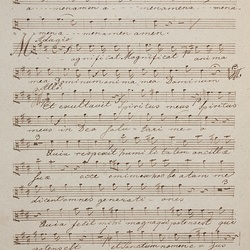 menamen a - - - menamena - mena
mena - - menamen amen.
Adagio
agnificat Magnificat anima
mea Dominum anima mea Dominum
Et exultavit Spiritus meus Spiritus
meus in Deo salu - tari me - o
Quia respexit humilitatem ancillae
suae ecce enim ex hoc beatam me
dicent omnes generati - ones
Quia fecit mihi magna qui potens est qui
potens est et sanctum nomen e - jus